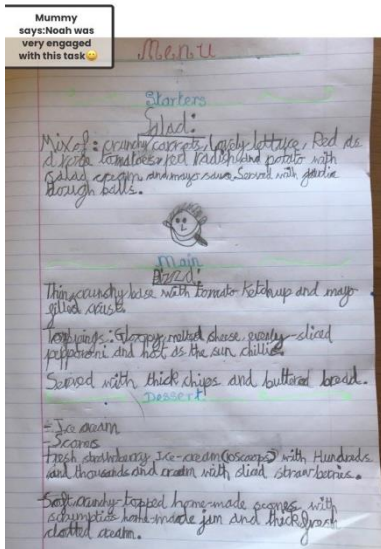 Mummy
says:Noah was
very engaged
with this task😀
Menu
Starters
Salad:
Mix of: crunchy carrots, lovely lettuce, Red as
a rose tomatoes, red radish and potato with
salad cream and mayo sauce. Served with
dough balls.
Main
Pizza:
Thin, crunchy base with tomato ketchup and mayo
filled crust.
Toppings: Gloopy, melted cheese, evenly-sliced
pepperoni and hot as the sun chillis.
Served with thick chips and buttered bread.
Dessert
- Ice cream
- Scones
Fresh strawberry Ice-cream with Hundreds
and thousands and cream with sliced strawberries.
Soft crunchy-topped home-made scones with
home-made jam and thick fresh
clotted cream.